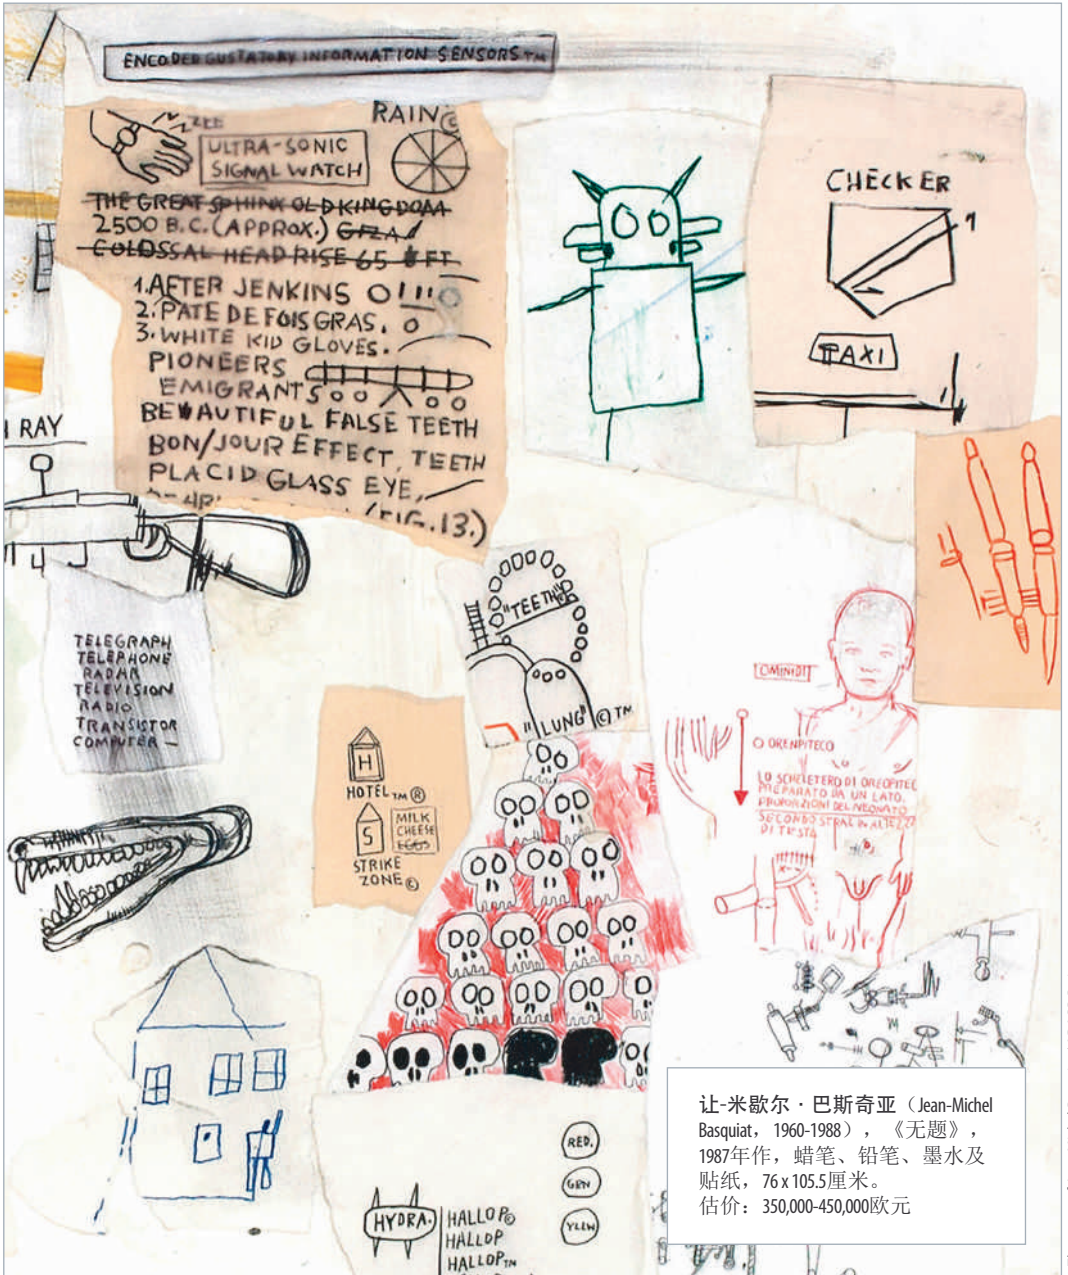 ENCODED GUSTATORY INFORMATION SENSORS TM
ZEE
RAIN ©
ULTRA-SONIC
SIGNAL WATCH
THE GREAT SPHINX OLD KINGDOM
2500 B.C. (APPROX.) GIZA
COLOSSAL HEAD RISE 65 FT
1. AFTER JENKINS
2. PATE DE FOIS GRAS.
3. WHITE KID GLOVES.
PIONEERS
EMIGRANTS
BEAUTIFUL FALSE TEETH
BON/JOUR EFFECT, TEETH
PLACID GLASS EYE,
(FIG.13.)
CHECKER
1
TAXI
RAY
TELEGRAPH
TELEPHONE
RADAR
TELEVISION
RADIO
TRANSISTOR
COMPUTER —
"TEETH"
"LUNG" © TM
H
HOTEL TM ®
S
MILK
CHEESE
EGGS
STRIKE
ZONE ©
OMINIDI
O ORENPITECO
LO SCHELETERO DI OREOPITEC
PREPARATO DA UN LATO.
PROPORZIONI DEL NEONATO
SECONDO STRAL IN ALTEZZ
DI TESTA
RED.
GRN
YLLW
HYDRA.
HALLOP ©
HALLOP
HALLOP TM
让-米歇尔·巴斯奇亚（Jean-Michel
Basquiat，1960-1988），《无题》，
1987年作，蜡笔、铅笔、墨水及
贴纸，76 x 105.5厘米。
估价：350,000-450,000欧元